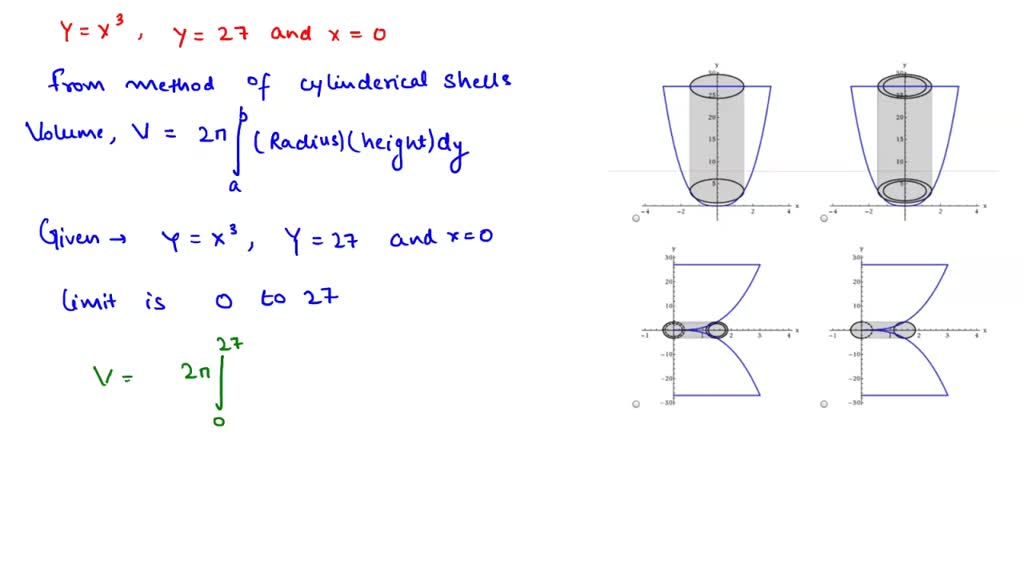 Y = x³, y = 27 and x = 0
from method of cylinderical shells
Volume, V = 2π ∫ₐᵇ (Radius)(height)dy
Given → y = x³, Y = 27 and x=0
limit is 0 to 27
V = 2π ∫₀²⁷
y 30 25 20 15 10 5 -4 -2 2 4 x
y 30 25 20 15 10 5 -4 -2 2 4 x
y 30 20 10 -1 1 2 3 4 x -10 -20 -30
y 30 20 10 -1 1 2 3 4 x -10 -20 -30